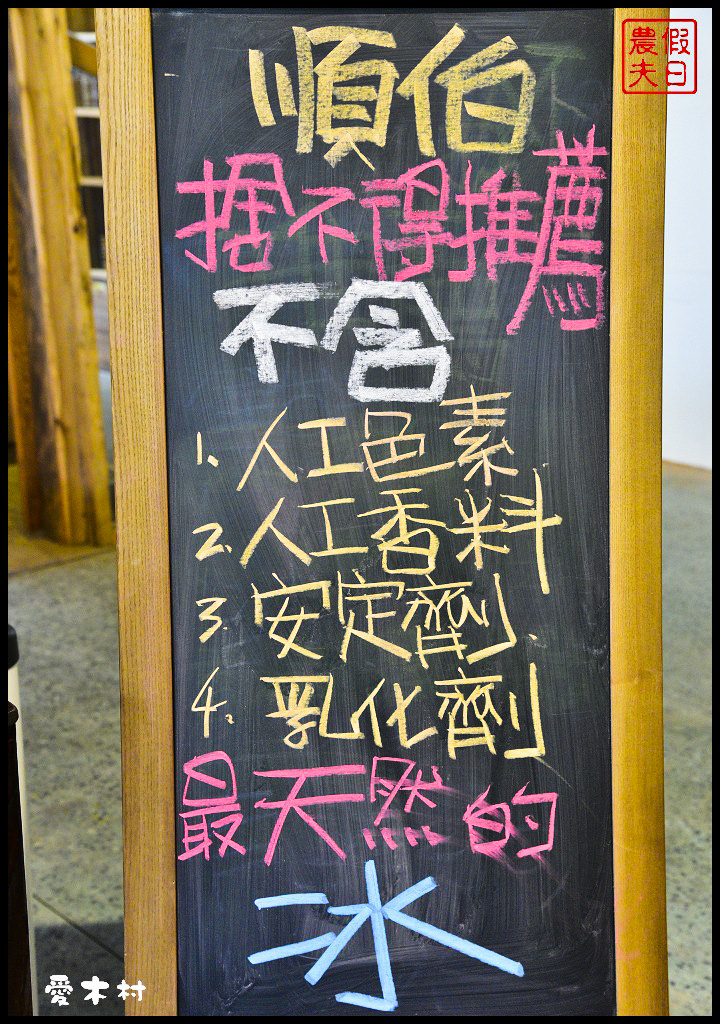 順伯
捨不得推薦
不含
1. 人工色素
2. 人工香料
3. 安定劑
4. 乳化劑
最天然的
冰
假日
農夫
愛木村